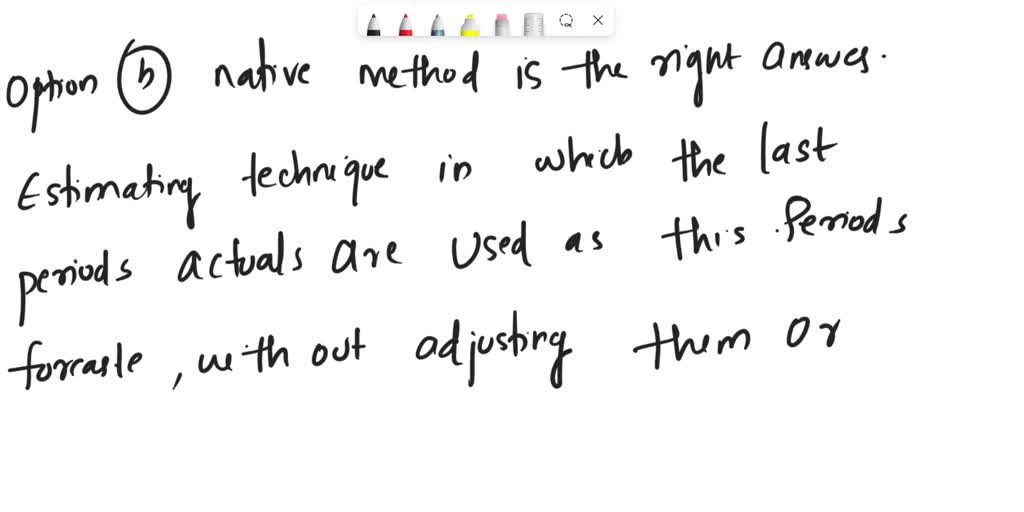 Option (b) native method is the right answer.
Estimating technique in which the last
periods actuals are used as this periods
forcaste, with out adjusting them or